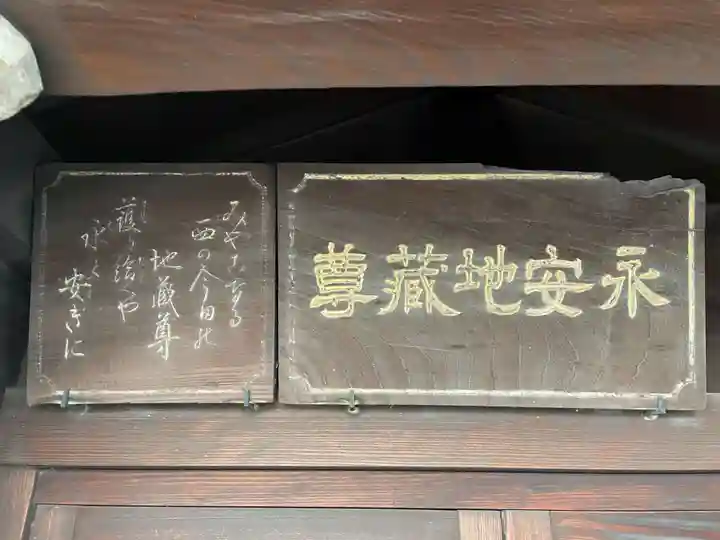 永安地藏尊
みやこなる
西の今田の
地蔵尊
護り給や
永く安きに